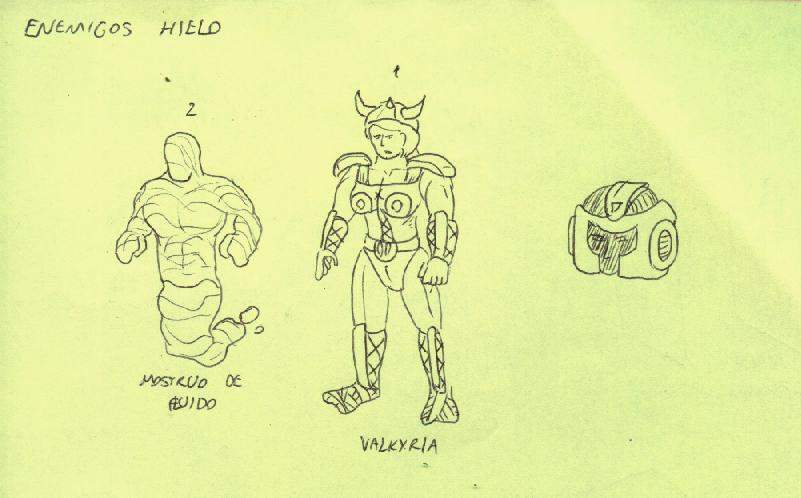 ENEMIGOS HIELO
1
2
MOSTRUO DE
FLUIDO
VALKYRIA